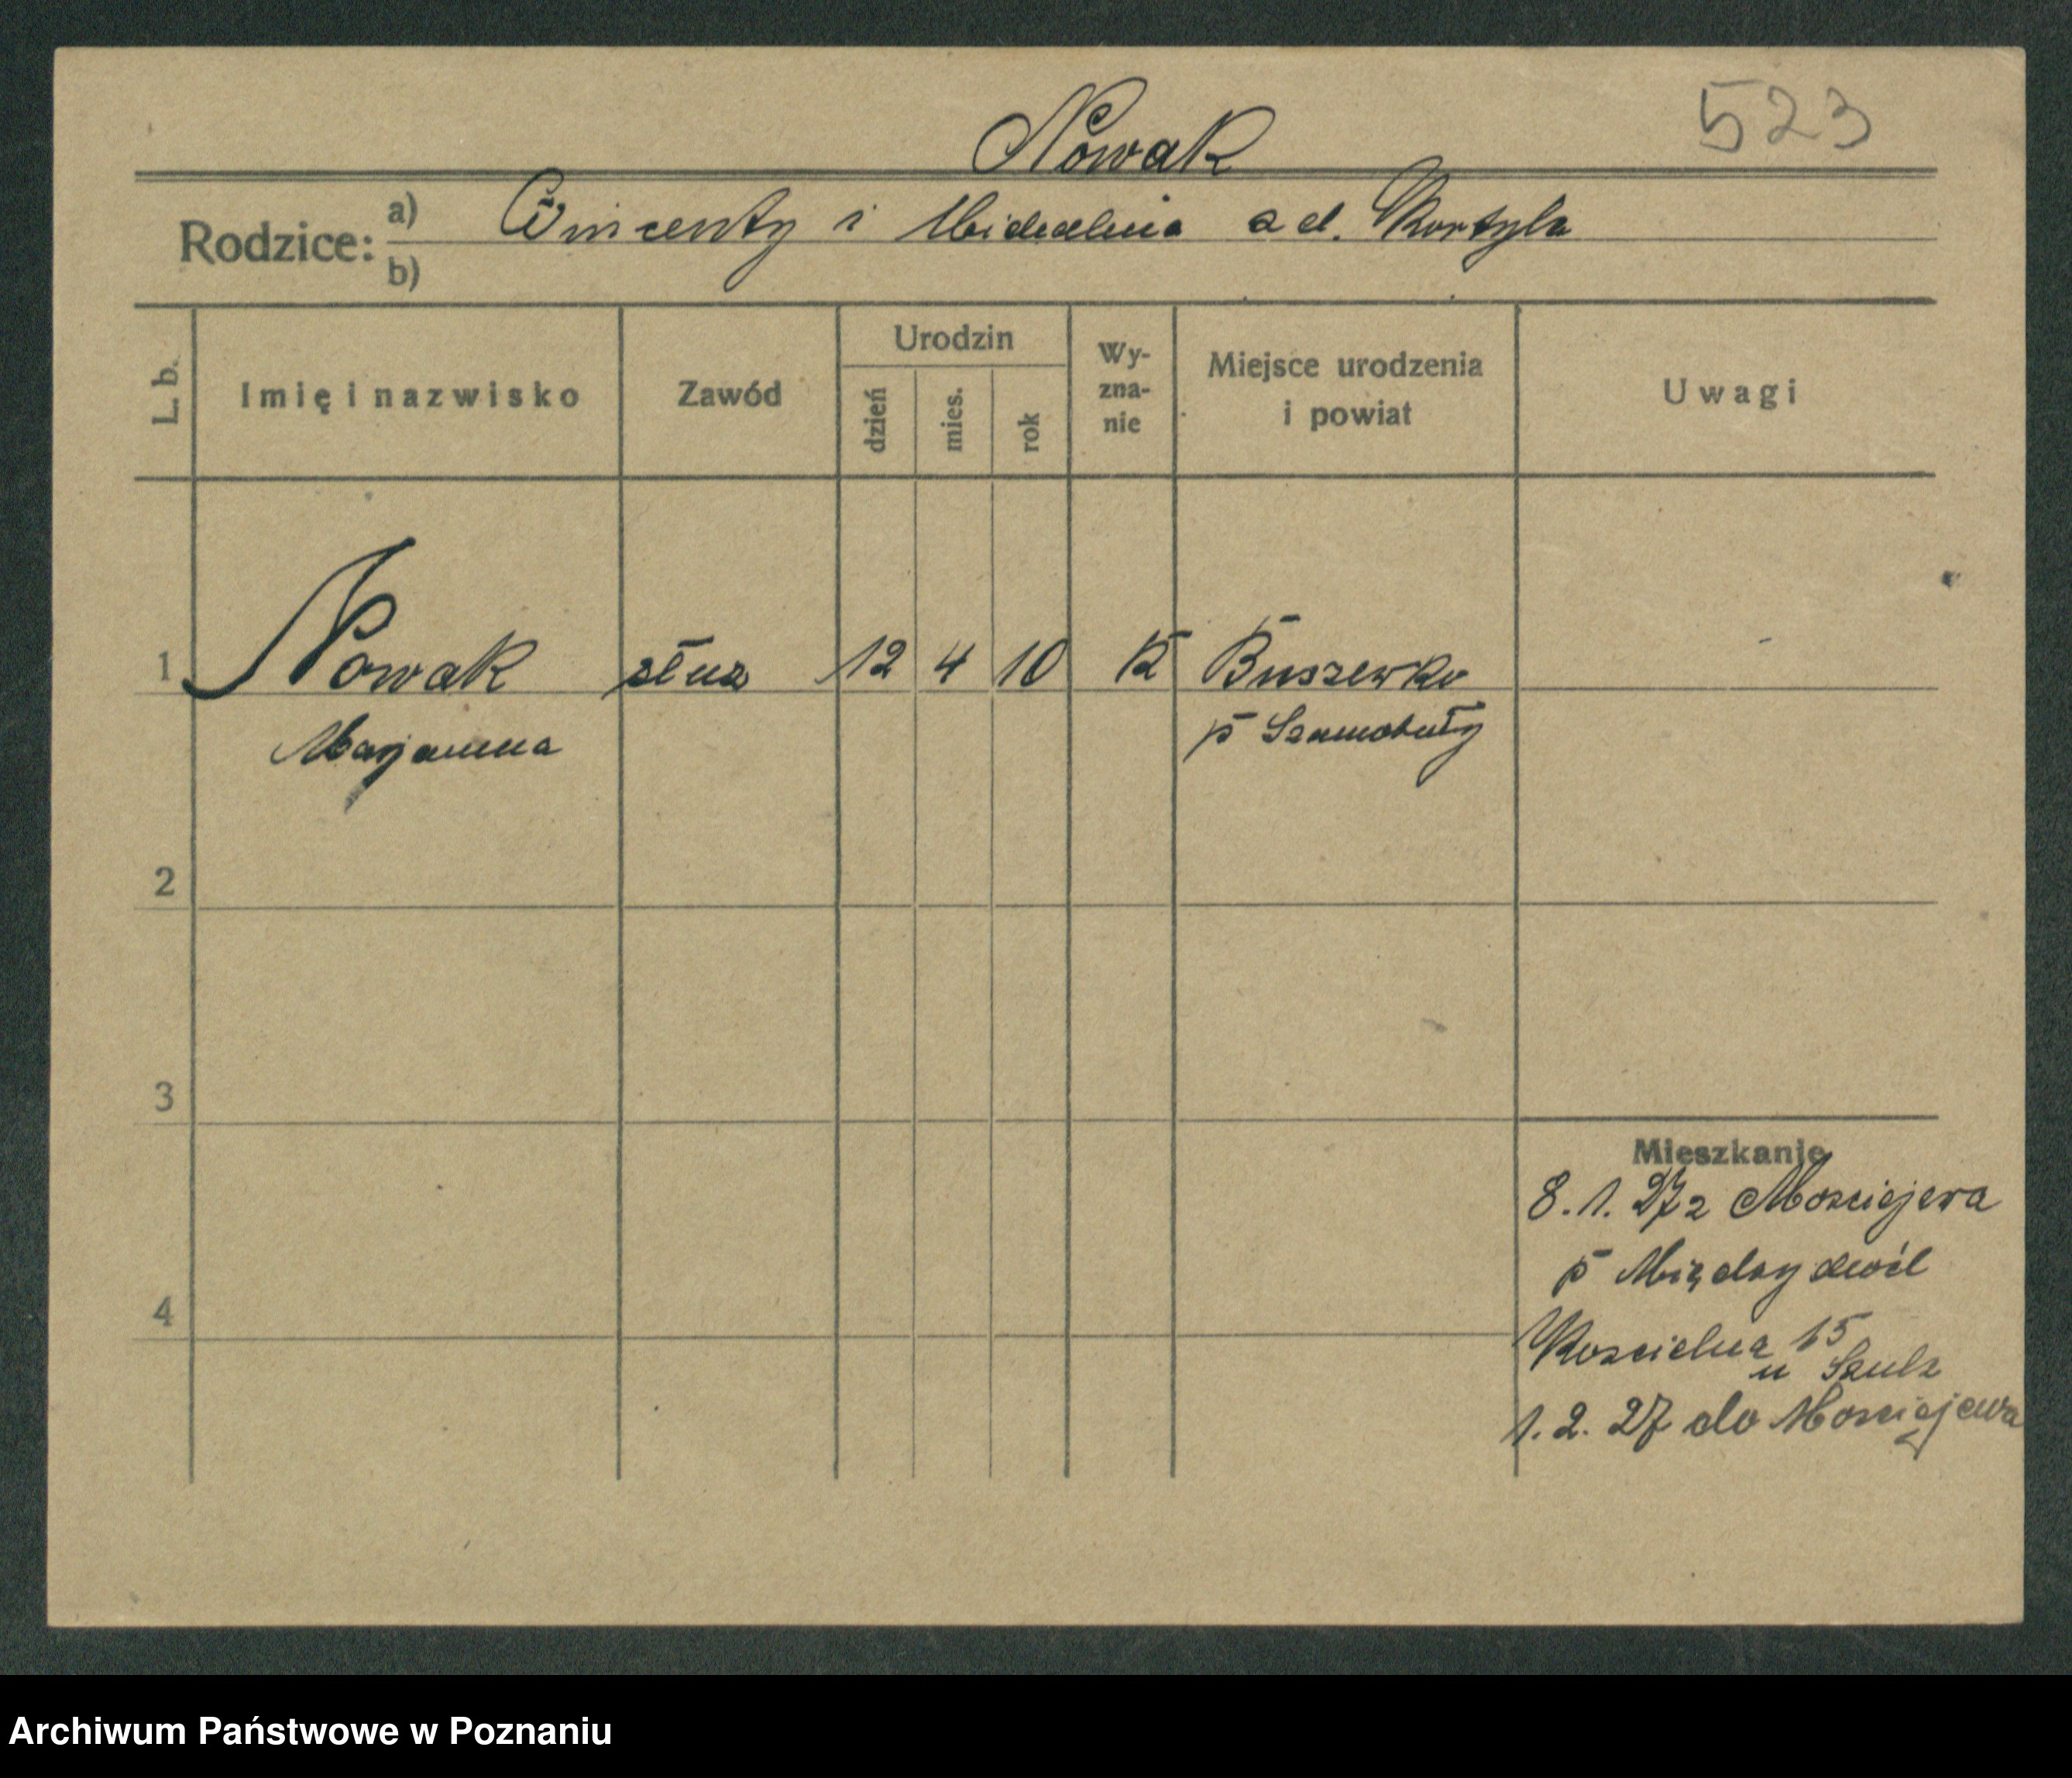 523
Nowak
Rodzice: a) Wincenty i Michalina z d. Kortyla
b)
L. b.
Imię i nazwisko
Zawód
Urodzin
dzień
mies.
rok
Wy-
zna-
nie
Miejsce urodzenia
i powiat
Uwagi
1 Nowak służ 12 4 10 K Buszewko
Marjanna p Szamotuły
2
3
Mieszkanie
8. 1. 27 z Mościejewa
p Międzychód
4
Kościelna 15
u Szulz
1. 2. 27 do Mościejewa
Archiwum Państwowe w Poznaniu